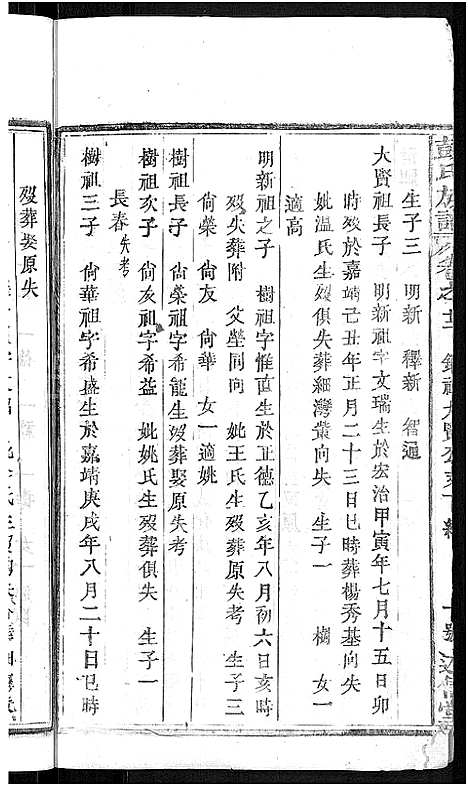 彭氏族譜 卷之
生子三 明新 釋新 智通
大賢祖長子 明新祖字文瑞生於宏治甲寅年七月十五日卯
時歿於嘉靖己丑年正月二十三日巳時葬楊秀基向失
妣溫氏生歿俱失葬細灣䕃向失 生子一 樹 女一
適高
明新祖之子 樹祖字惟直生於正德乙亥年八月初六日亥時
歿失葬附 父塋同向 妣王氏生歿葬原失考 生子三
尙榮 尙友 尙華 女一適姚
樹祖長子 尙榮祖字希龍生歿葬娶原失考
樹祖次子 尙友祖字希益 妣姚氏生歿葬俱失 生子一
長春失考
樹祖三子 尙華祖字希盛生於嘉靖庚戌年八月二十日巳時
歿葬娶原失